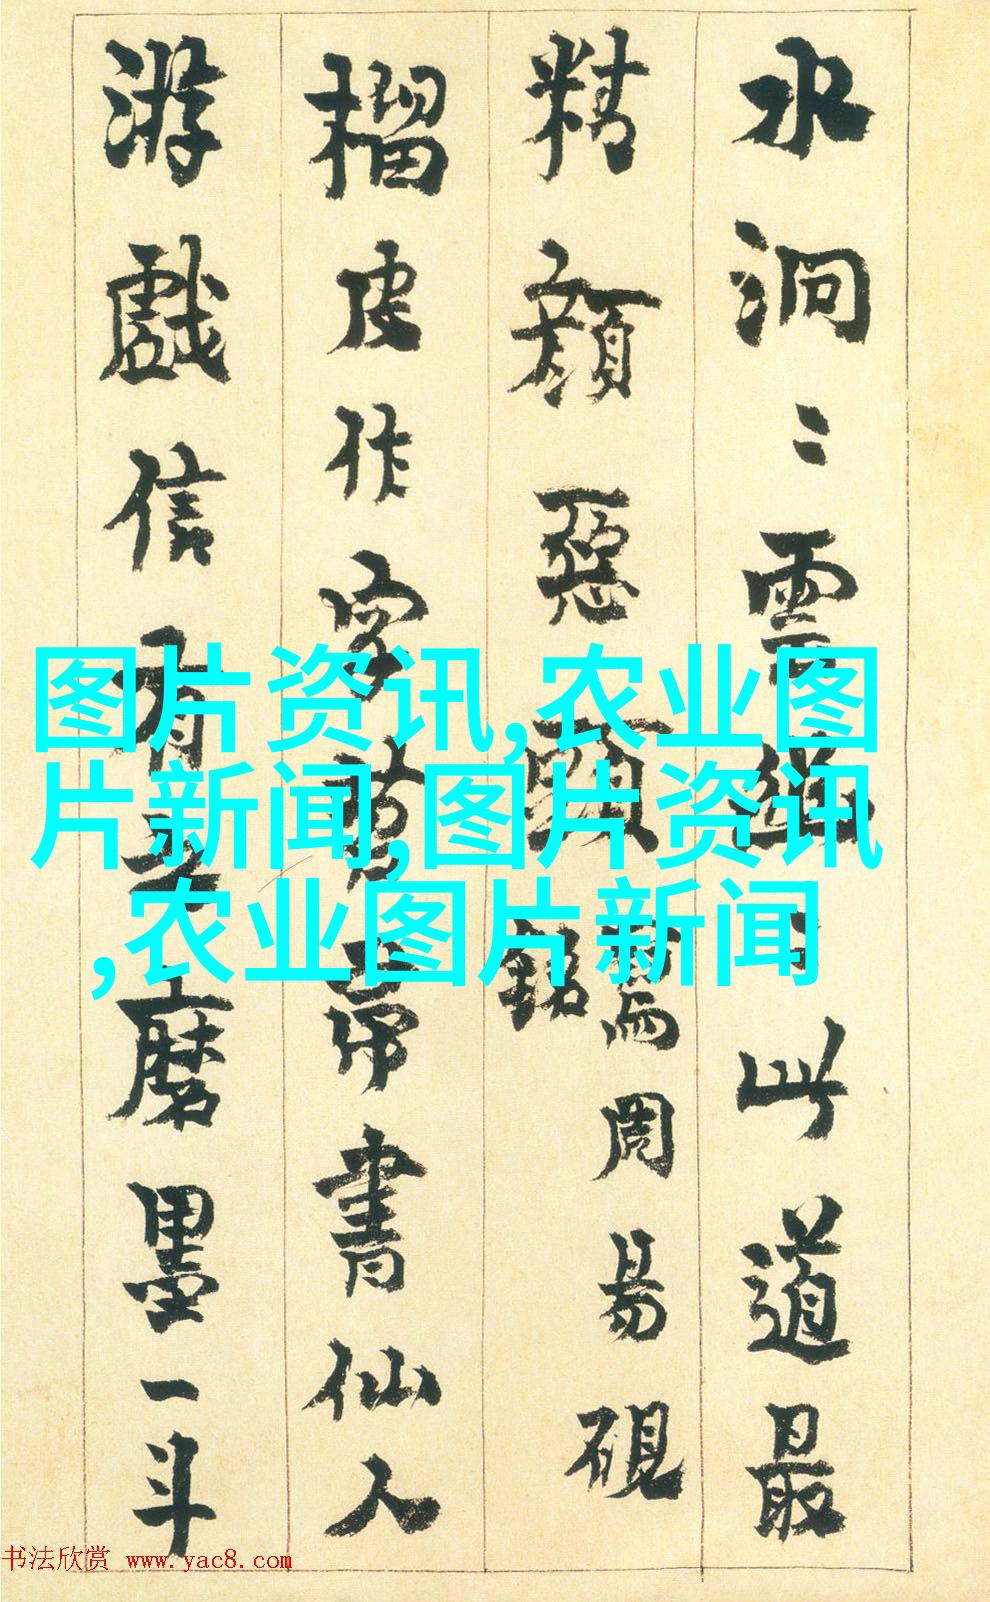 水洞〻雲繼〻此道最
精顏惡頭周易硯
銘
榴皮作字帚書仙人
游戲信有之磨墨一斗
图片资讯,农业图
片新闻,图片资讯
,农业图片新闻
书法欣赏 www.yac8.com